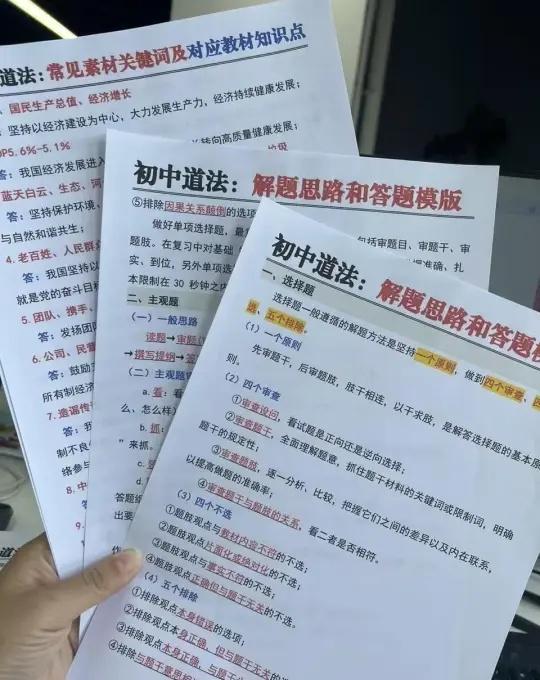 道法：常见素材关键词及对应教材知识点
、国民生产总值、经济增长
坚持以经济建设为中心，大力发展生产力，经济持续健康发展；
5.6%-5.1%
答：我国经济发展进入
转向高质量健康发展；
蓝天白云、生态、河
垃圾
答：坚持保护环境、
与自然和谐共生；
4.老百姓、人民群众
答：我国坚持以
就是党的奋斗目标
5.团队、携手、
答：发扬团
6.公司、民营
答：鼓励
所有制经济
7.造谣传
答：我
制不良
络参与
8.中
9.
初中道法：解题思路和答题模版
⑤排除因果关系颠倒的选项
做好单项选择题，最
包括审题目、审题干、审
题肢。在复习中对基础
握准确、扎
实、到位，另外单项选
本限制在 30 秒钟之内
二、主观题
（一）一般思路
读题→审题（
→撰写提纲→答
（二）主观题
a.看：看
么、怎么样）
b.抓：
”来抓。
c.
d.
答题
出要
作
初中道法：解题思路和答题模
一、选择题
选择题一般遵循的解题方法是坚持一个原则，做到四个审查、四
选、五个排除。
（1）一个原则
先审题干，后审题肢，肢干相连，以干求肢，是解答选择题的基本原
则。
（2）四个审查
①审查设问，看试题是正向还是逆向选择；
②审查题干，全面理解题意，抓住题干材料的关键词或限制词，明确
题干的规定性；
③审查题肢，逐一分析、比较，把握它们之间的差异以及内在联系，
以提高做题的准确率；
④审查题干与题肢的关系，看二者是否相符。
（3）四个不选
①题肢观点与教材内容不符的不选；
②题肢观点片面化或绝对化的不选；
③题肢观点与事实不符的不选；
④题肢观点正确但与题干无关的不选。
（4）五个排除
①排除观点本身错误的选项；
②排除观点本身正确，但与题干无关的
③排除观点本身正确，与题干
④排除与题干意思相